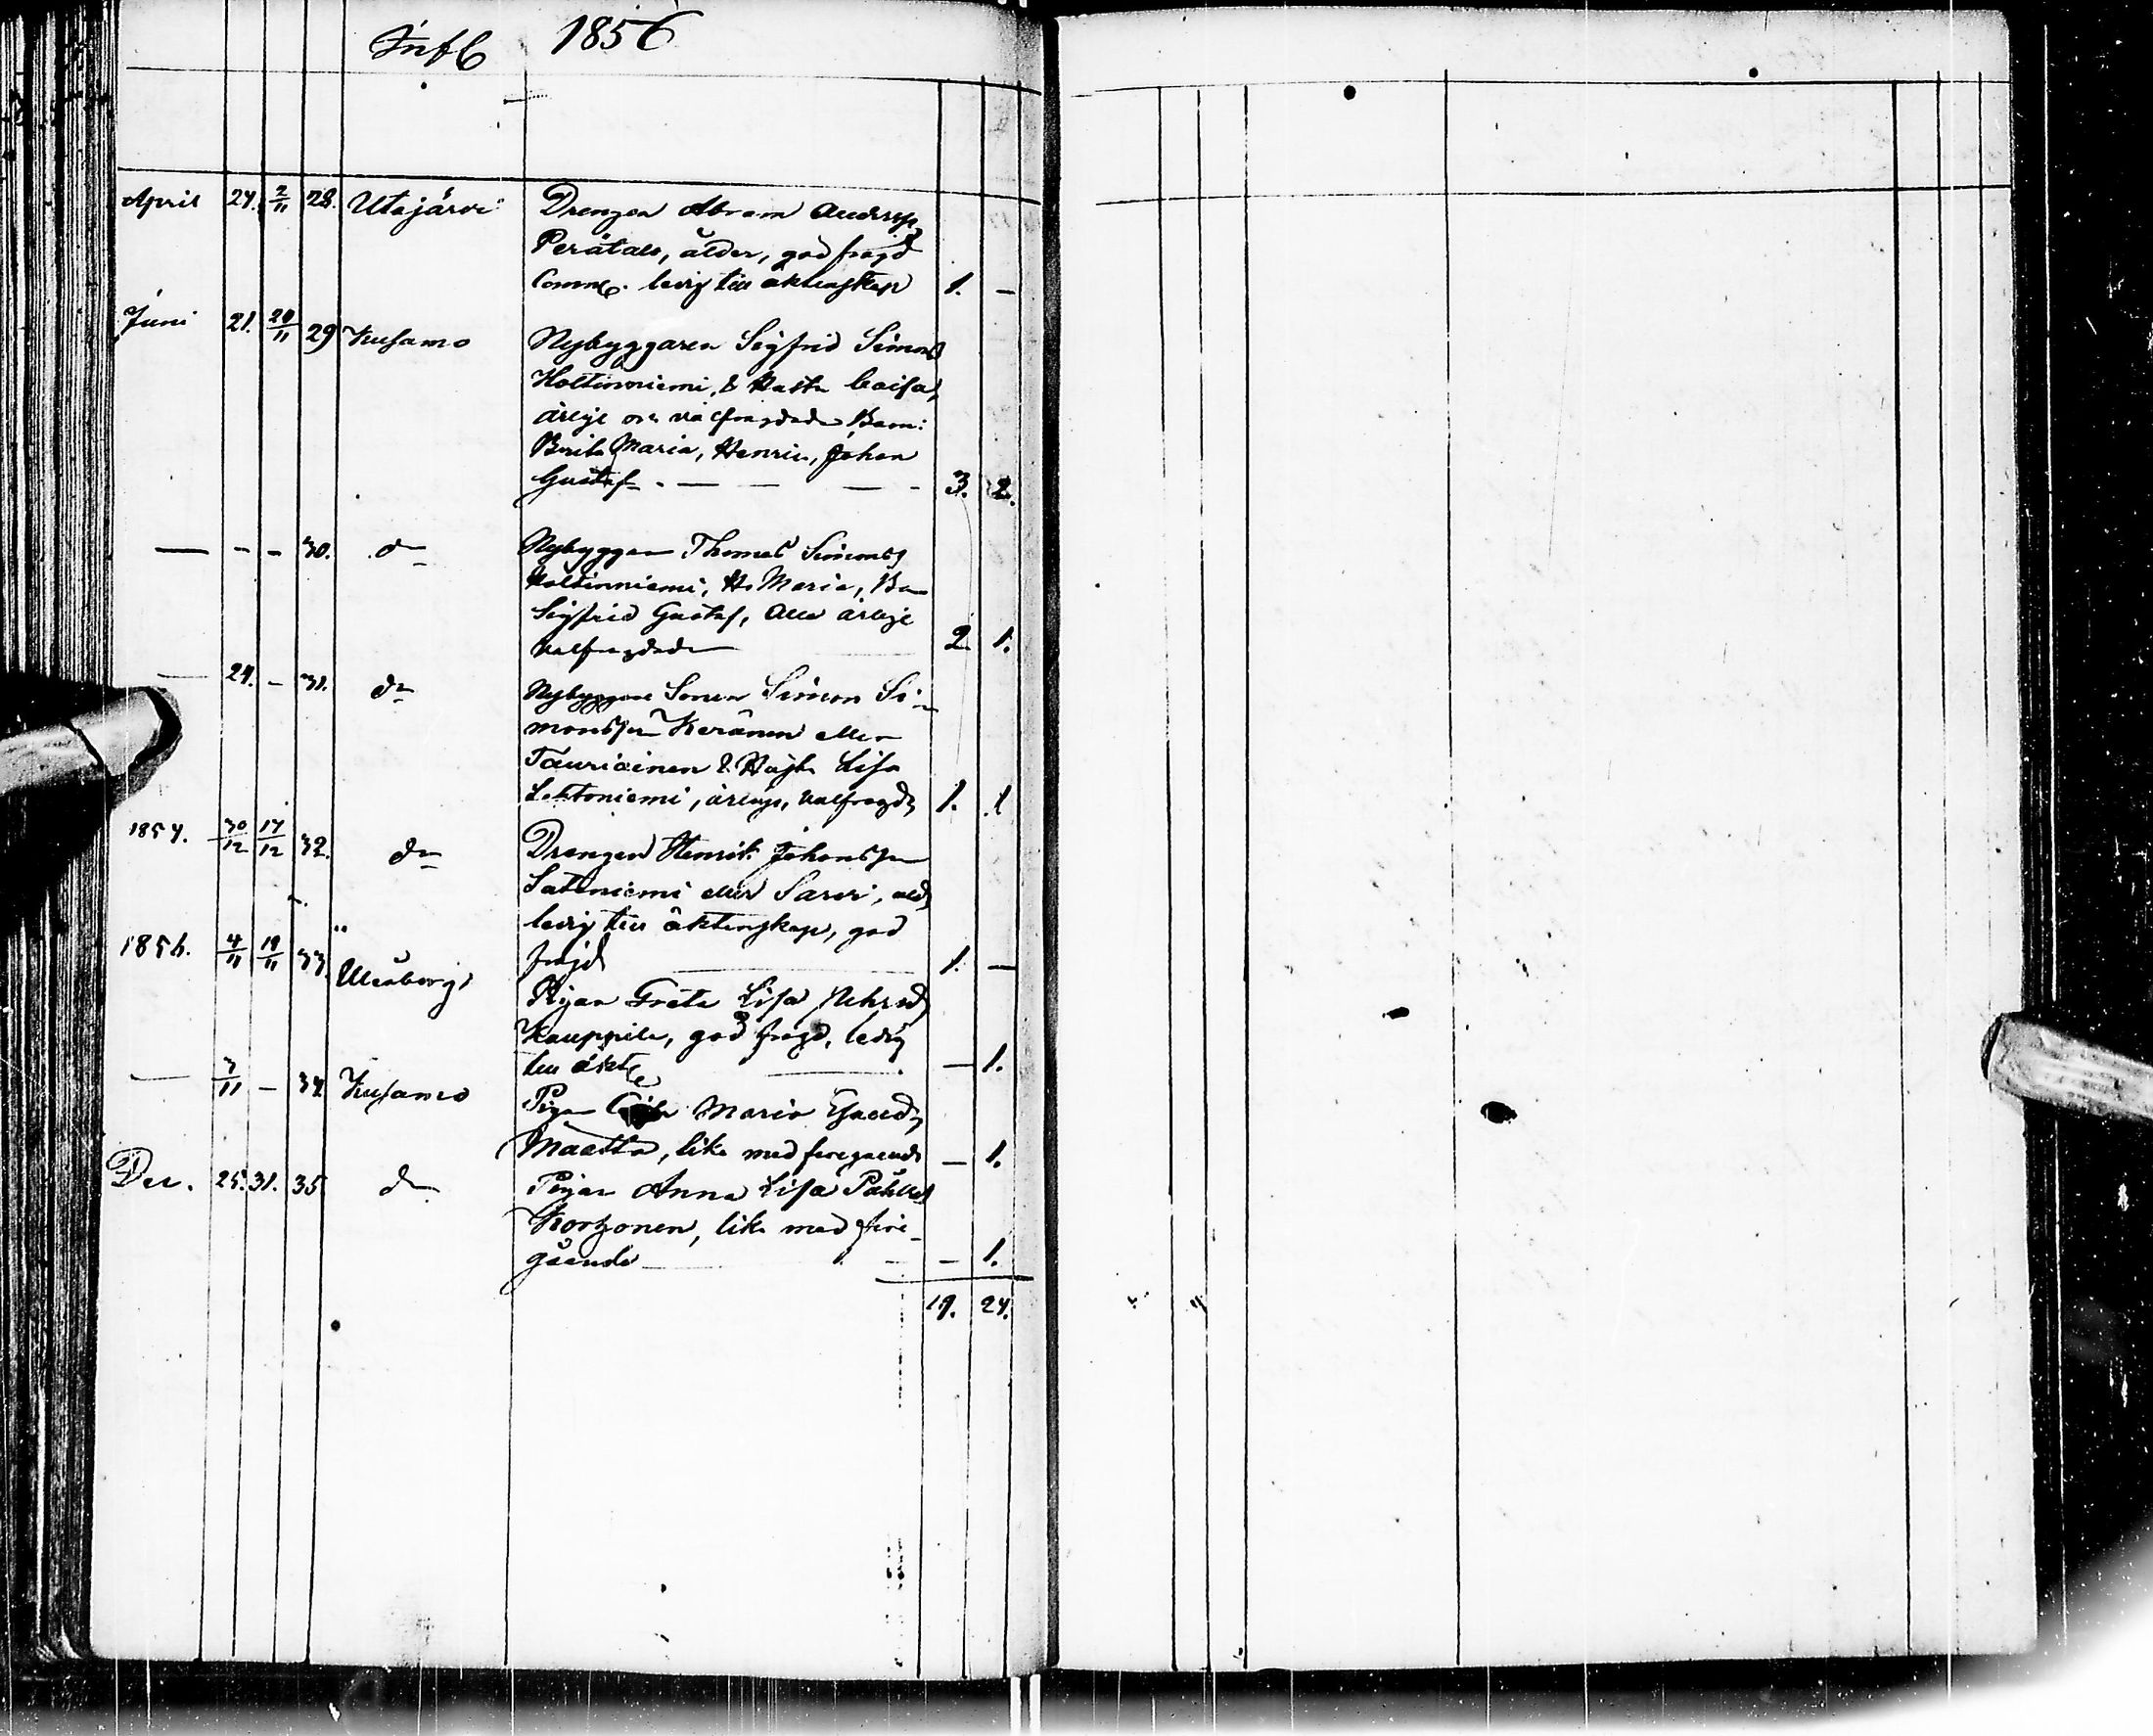 Infl 1856
April 24. 2/11 28. Utajärvi Drengen Abram Anderss
Perätalo, ålder, god frägd
Comm. ledig till äktenskap 1. —
Juni 21. 20/11 29 Kusamo Nybyggaren Sigfrid Simons
Holtinniemi, & Hustr Caisa,
ärlige och välfragdade Barn:
Brita Maria, Henric, Johan
Gustaf - — — — - 3. 2.
— - - 30. do Nybyggaren Thomas Simons
Holtinniemi, H. Maria, Ba
Sigfrid Gustaf, Alla ärlige
välfragdade 2 1.
— 24. - 31. do Nybyggare Sonen Simon Si-
monsson Keränen eller
Tauriainen & Hustr Lisa
Lehtoniemi, ärlige, välfragd 1. 1
1854. 30/12 17/12 32. do Drengen Henrik Johansson
Satoniemi eller Sarvi, ald
ledig till äktenskap, god
1856. 4/11 19/11 33. Uleåborgs fräjd 1. —
Pigan Greta Lisa
Kauppila, god fragd, ledig
till äkt — 1.
— 3/11 — 34 Kusamo Pigan Maria
Maatta, lika med foregaende — 1.
Dec. 25. 31. 35 do Pigan Anna Lisa Påhls
Korhonen, lika med före-
gående — 1.
19. 24.